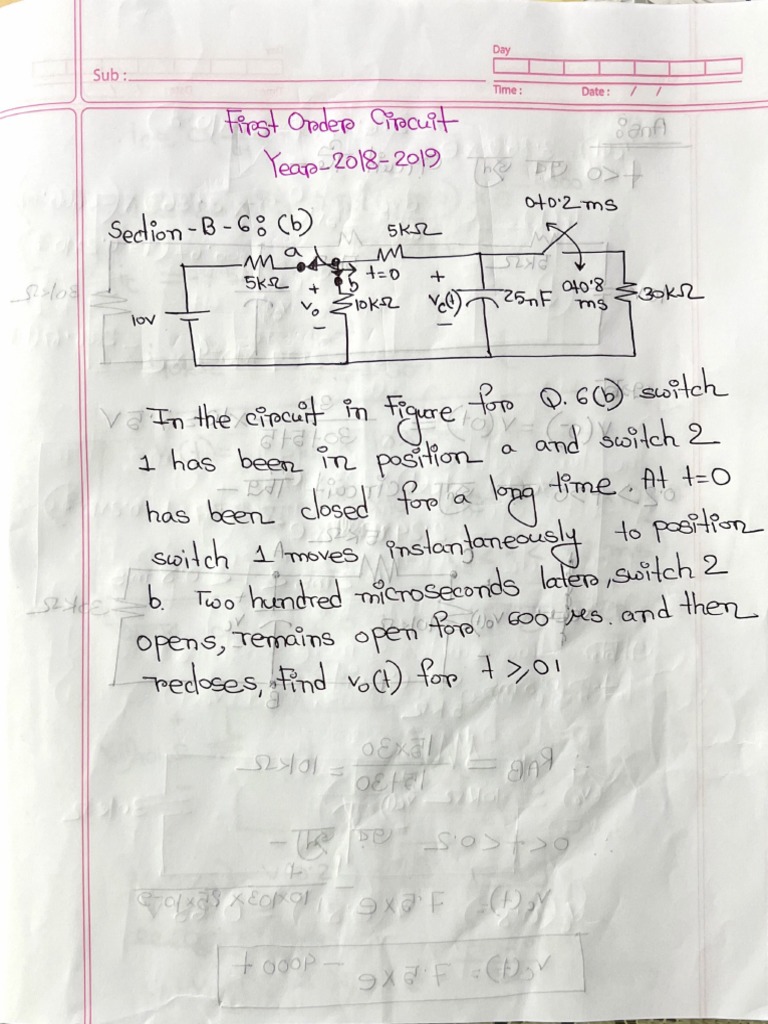 Day
Sub :
Time :
Date : / /
First Order Circuit
Year-2018-2019
at 0.2 ms
Section-B-6: (b)
5kΩ
a
t=0
5kΩ
b
+
+
10V
vo
10kΩ
vc(t)
25nF
at 0.8
ms
30kΩ
−
−
In the circuit in Figure for Q. 6(b) switch
1 has been in position a and switch 2
has been closed for a long time. At t=0
switch 1 moves instantaneously to position
b. Two hundred microseconds later, switch 2
opens, remains open for 600 μs. and then
recloses, Find vo(t) for t ≥ 0।